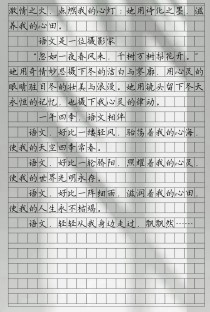 激情之火,点燃我的心灯;她用诗化之墨,滋
养我的心田。
语文是一位摄影家
“忽如一夜春风来,千树万树梨花开。”
她用奇情妙思摄下冬的洁白与寥廓,用心灵的
眼睛驻目冬的壮美与浪漫。她用镜头留下冬天
永恒的记忆,也摄下我心灵的律动。
一年四季,语文相伴
语文,好比一缕轻风,驰荡着我的心海,
使我的天空四季常春。
语文,好比一轮骄阳,照耀着我的心灵,
使我的世界光明永存。
语文,好比一阵细雨,滋润着我的心田,
使我的人生永不枯竭。
语文,轻轻从我身边走过,飘飘然……